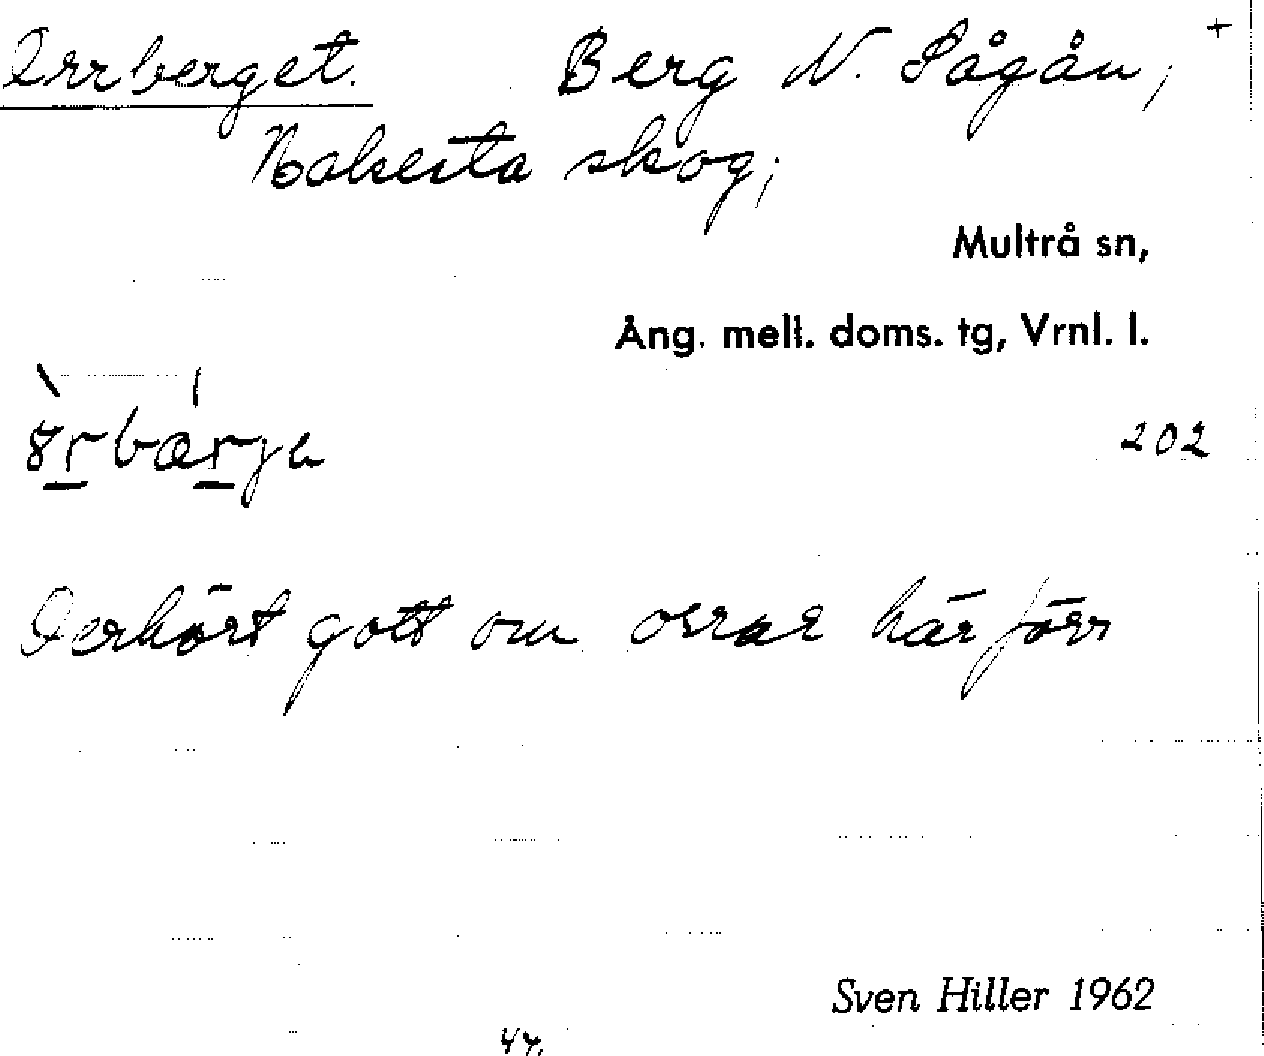 Orrberget. Berg N. Sågån, +
Nakesta skog;
Multrå sn,
Ång. mell. doms. tg, Vrnl. l.
202
Oerhört gott om orrar här förr
Sven Hiller 1962